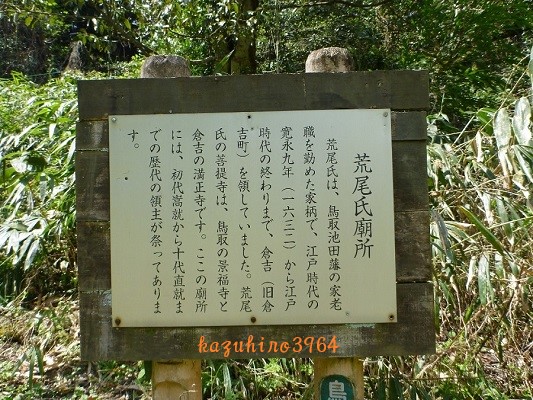 荒尾氏廟所
荒尾氏は、鳥取池田藩の家老
職を勤めた家柄で、江戸時代の
寛永九年（一六三二）から江戸
時代の終わりまで、倉吉（旧倉
吉町）を領していました。荒尾
氏の菩提寺は、鳥取の景福寺と
倉吉の満正寺です。ここの廟所
には、初代嵩就から十代直就ま
での歴代の領主が祭ってありま
す。
kazuhiro3964
鳥